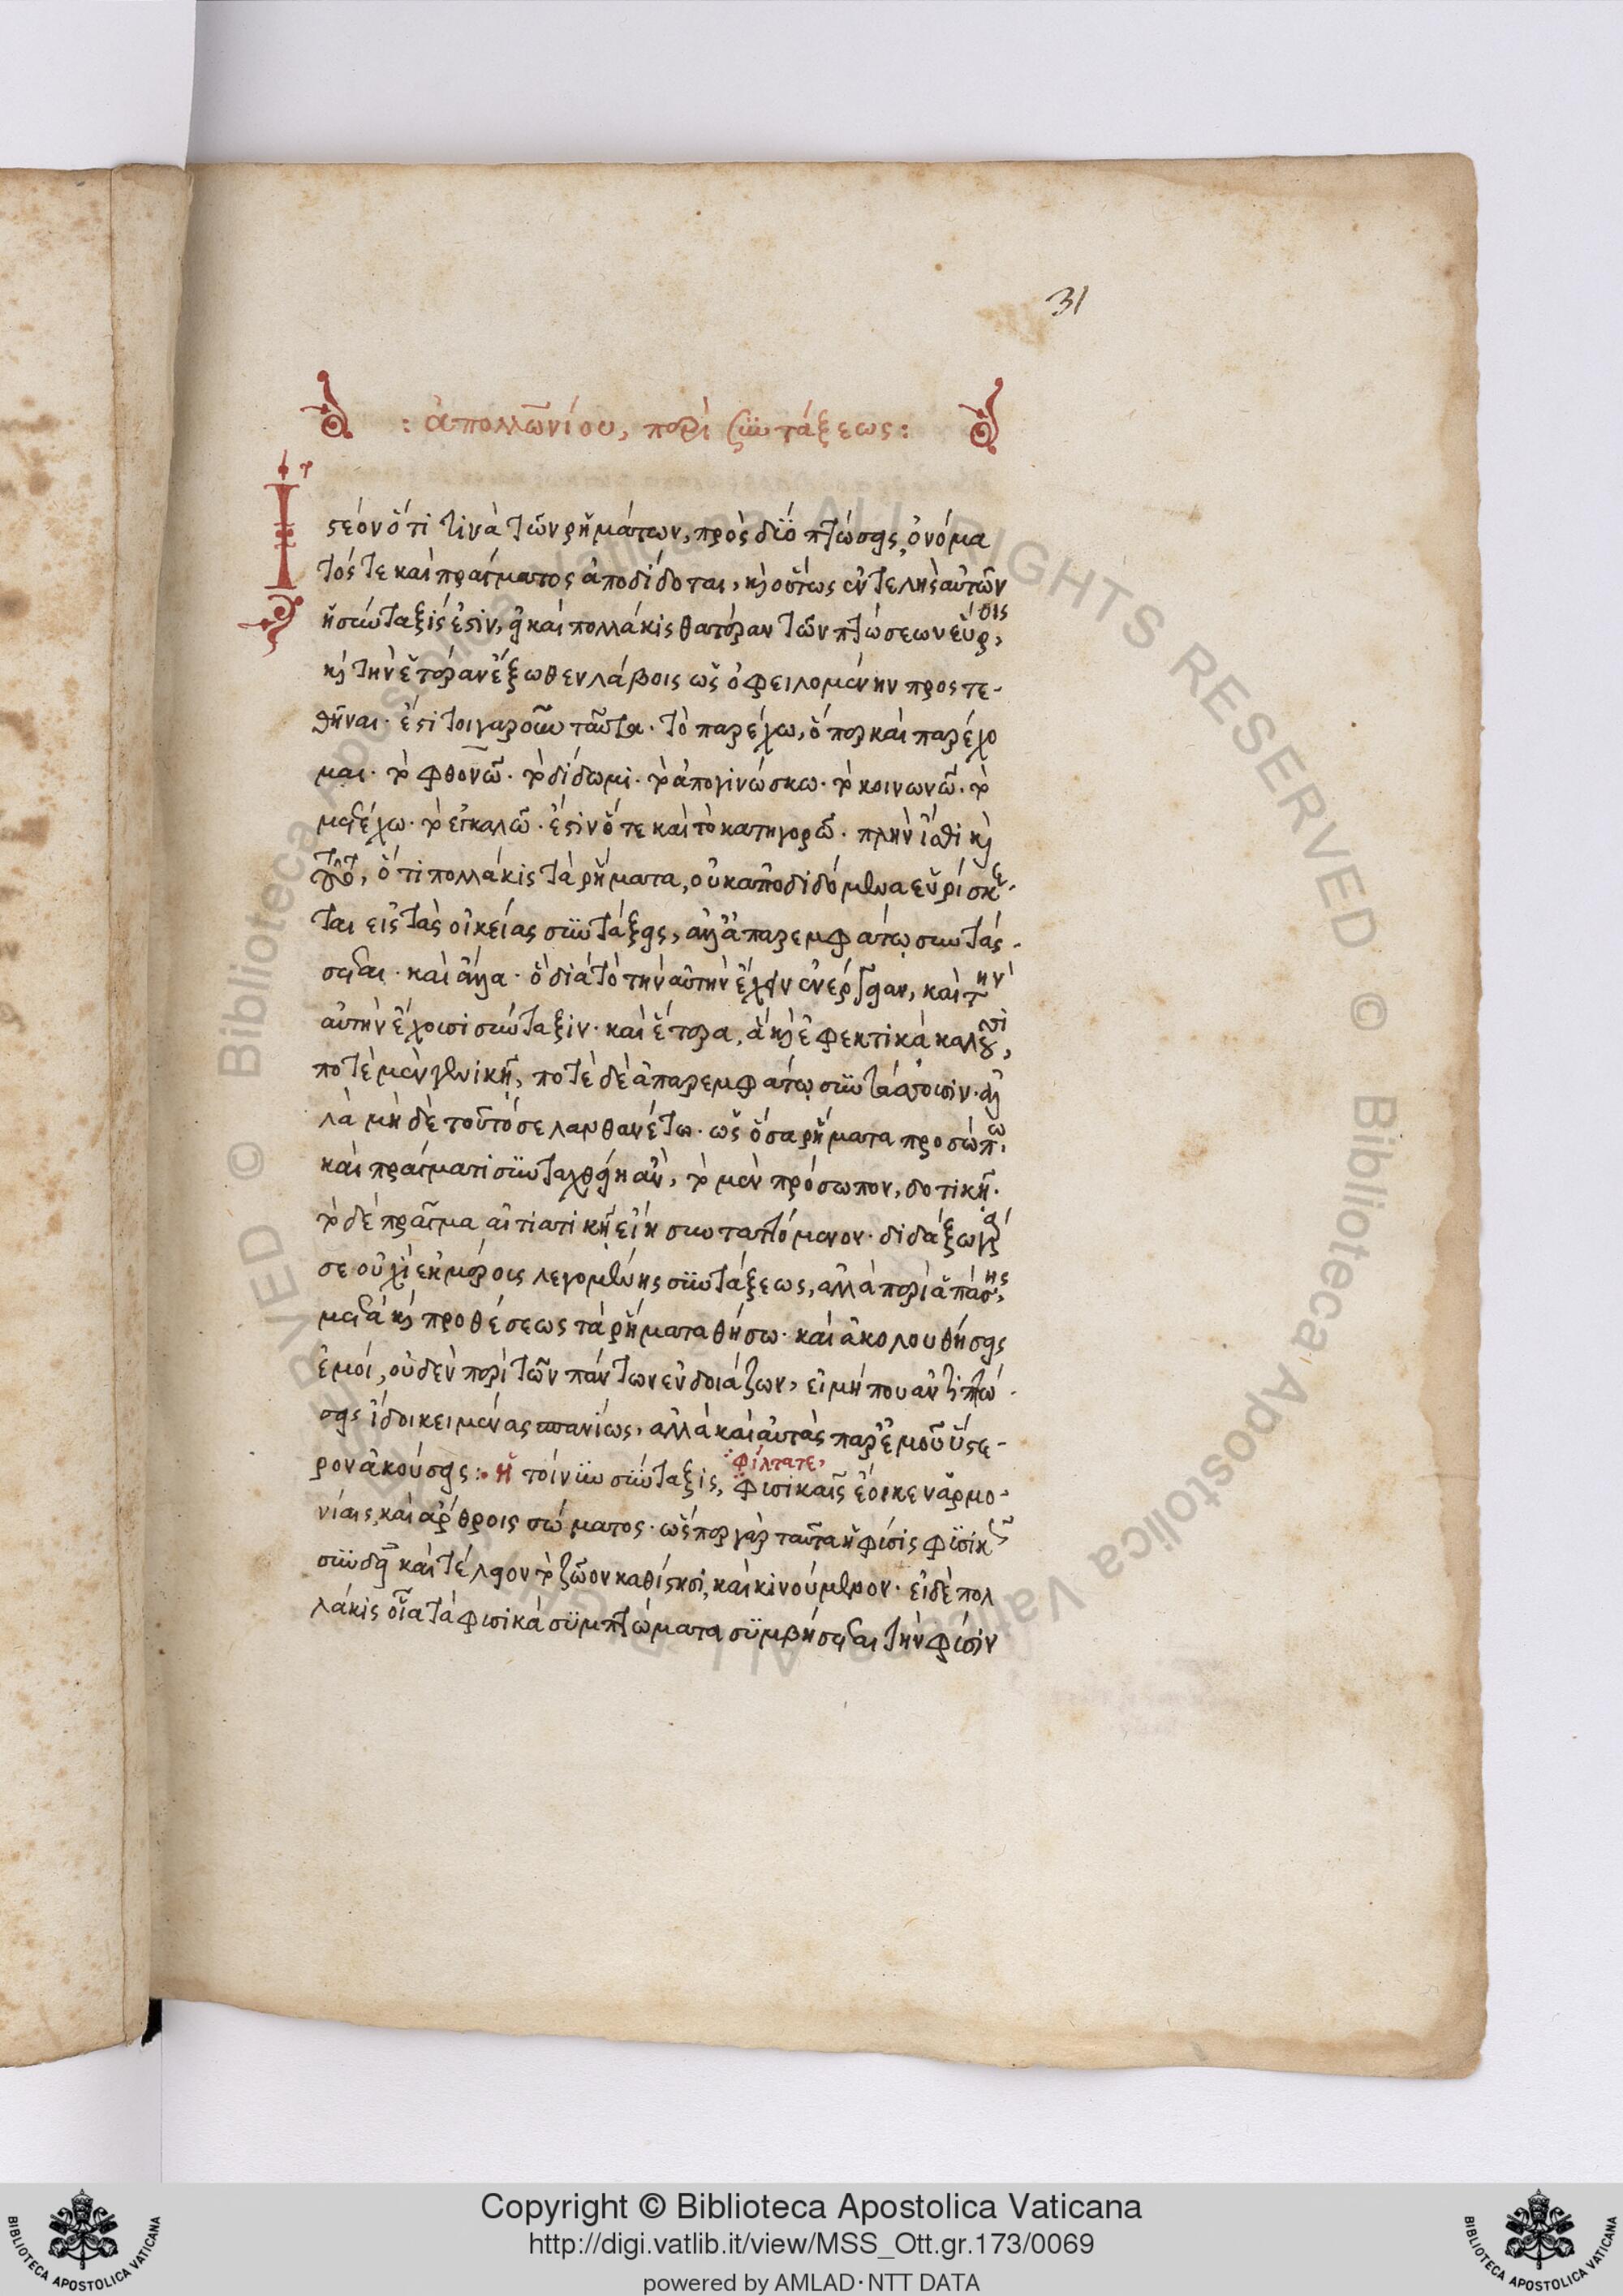 31
: ἀπολλωνίου, περὶ συντάξεως :
Ἰστέον ὅτι τινὰ τῶν ῥημάτων, πρὸς δύο πτώσεις, ὀνόμα
τός τε καὶ πράγματος ἀποδίδοται, καὶ οὕτως ἐντελὴς αὐτῶν
ἡ σύνταξίς ἐστιν, εἰ καὶ πολλάκις θατέραν τῶν πτώσεων εὕροις,
καὶ τὴν ἑτέραν ἔξωθεν λάβοις ὡς ὀφειλομένην προστε-
θῆναι. ἔστι τοιγαροῦν ταῦτα. τὸ παρέχω, ὅπερ καὶ παρέχο
μαι. τὸ φθονῶ. τὸ δίδωμι. τὸ ἀπογινώσκω. τὸ κοινωνῶ. τὸ
μετέχω. τὸ ἐγκαλῶ. ἔστιν ὅτε καὶ τὸ κατηγορῶ. πλὴν ἴσθι καὶ
τοῦτο, ὅτι πολλάκις τὰ ῥήματα, οὐκ ἀποδιδόμενα εὑρίσκε-
ται εἰς τὰς οἰκείας συντάξεις, ἀλλ' ἀπαρεμφάτῳ συντάσ-
σεσθαι. καὶ ἄλλα. ἃ διὰ τὸ τὴν αὐτὴν ἔχειν ἐνέργειαν, καὶ τὴν
αὐτὴν ἔχουσι σύνταξιν. καὶ ἕτερα, ἃ καὶ ἐφεκτικὰ καλοῦσι,
ποτὲ μὲν γενικῇ, ποτὲ δὲ ἀπαρεμφάτῳ συντάσσουσιν. ἀλ
λὰ μὴ δὲ τοῦτό σε λανθανέτω. ὡς ὅσα ῥήματα προσώπῳ
καὶ πράγματι συνταχθείη ἂν, τὸ μὲν πρόσωπον, δοτικῇ.
τὸ δὲ πρᾶγμα αἰτιατικῇ εἴη συνταττόμενον. διδάξω γάρ
σε οὐχὶ ἐκ μέρους λεγομένης συντάξεως, ἀλλὰ περὶ ἁπάσης,
μετὰ καὶ προθέσεως τὰ ῥήματα θήσω. καὶ ἀκολουθήσεις
ἐμοί, οὐδὲν περὶ τῶν πάντων ἐνδοιάζων, εἰ μή που ἀντιπτώ-
σεις ἴδοι κειμένας σπανίως, ἀλλὰ καὶ αὐτὰς παρ' ἐμοῦ ὕστε-
φίλτατε,
ρον ἀκούσεις :. ἡ τοίνυν σύνταξις, φυσικαῖς ἔοικεν ἁρμο-
νίαις, καὶ ἄρθροις σώματος. ὥσπερ γὰρ ταῦτα ἡ φύσις φυσικῶς
συνδεῖ καὶ τέλειον τὸ ζῶον καθίστησι, καὶ κινούμενον. εἰ δὲ πολ
λάκις οἷα τὰ φυσικὰ συμπτώματα συμβήσεσθαι τὴν φύσιν
Copyright © Biblioteca Apostolica Vaticana
http://digi.vatlib.it/view/MSS_Ott.gr.173/0069
powered by AMLAD·NTT DATA
BIBLIOTECA APOSTOLICA VATICANA
BIBLIOTECA APOSTOLICA VATICANA